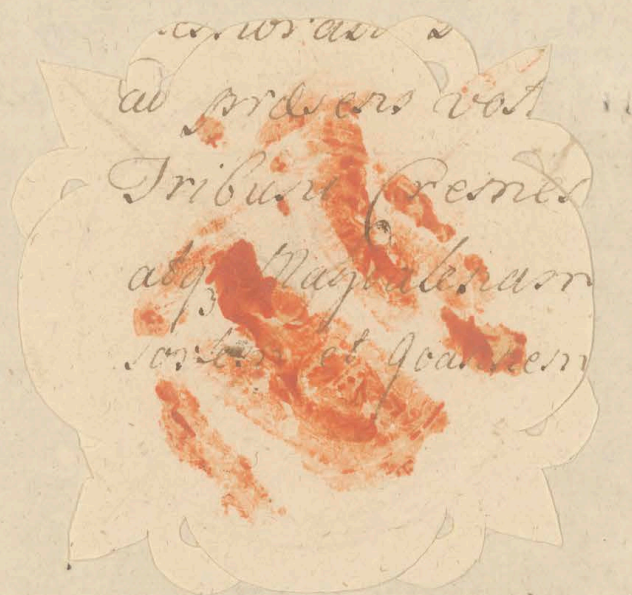 ad præsens vost
Tribuni Cremes
atq3 Magdalenam
sortem et Joannem